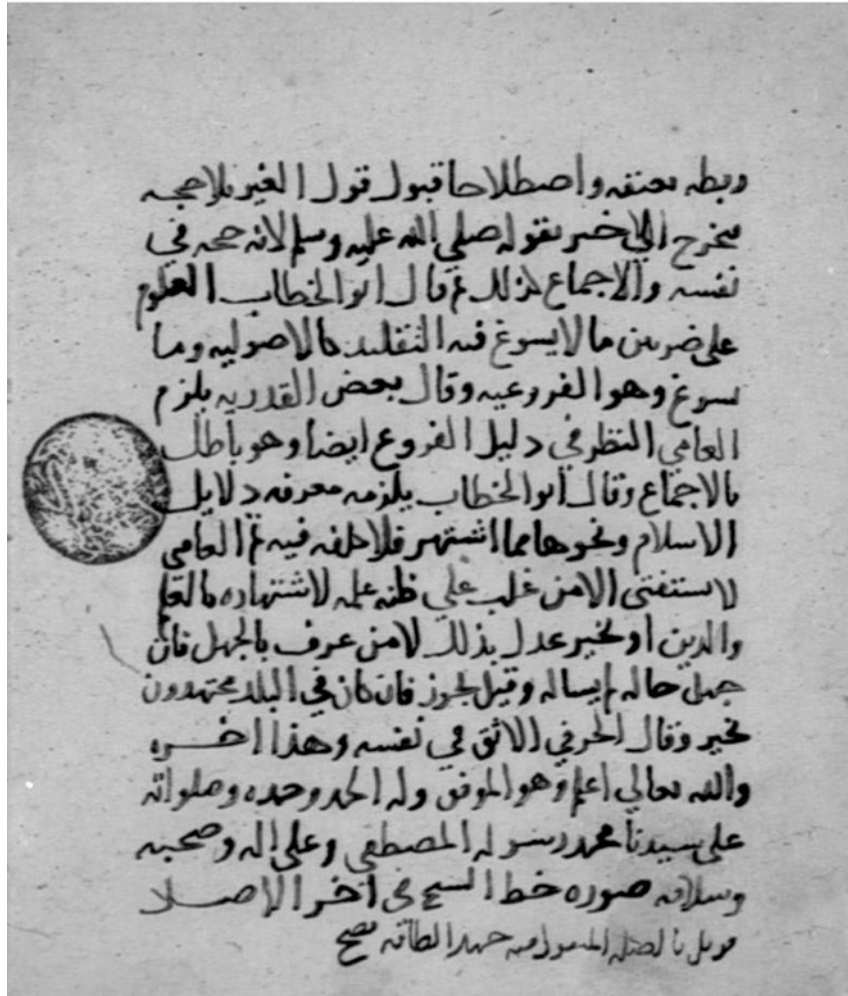 وربطه بعنقه واصطلاحا قبول قول الغير بلا حجه
فخرج الاخير بقوله صلي الله عليه وسلم لانه حجه في
نفسه والاجماع كذلك ثم قال ابو الخطاب العلوم
علي ضربين ما لا يسوغ فيه التقليد كالاصوليه وما
يسوغ وهو الفروعيه وقال بعض القدريه يلزم
العامي النظر في دليل الفروع ايضا وهو باطل
بالاجماع وقال ابو الخطاب يلزمه معرفه دلايل
الاسلام ونحوها مما اشتهر فلا كلفه فيه ثم العامي
لا يستفتي الا من غلب علي ظنه علمه لاشتهاره بالعلم
والدين او بخبر عدل بذلك لا من عرف بالجهل فان
جهل حاله لم يساله وقيل يجوز فان كان في البلد مجتهدون
تخير وقال الخرقي الاوثق في نفسه وهذا اخره
والله تعالي اعلم وهو الموفق وله الحمد وحده وصلواته
علي سيدنا محمد رسوله المصطفي وعلي اله وصحبه
وسلامه صوره خط الشيخ في اخر الاصل
قوبل باصله المنقول منه جهد الطاقه فصح